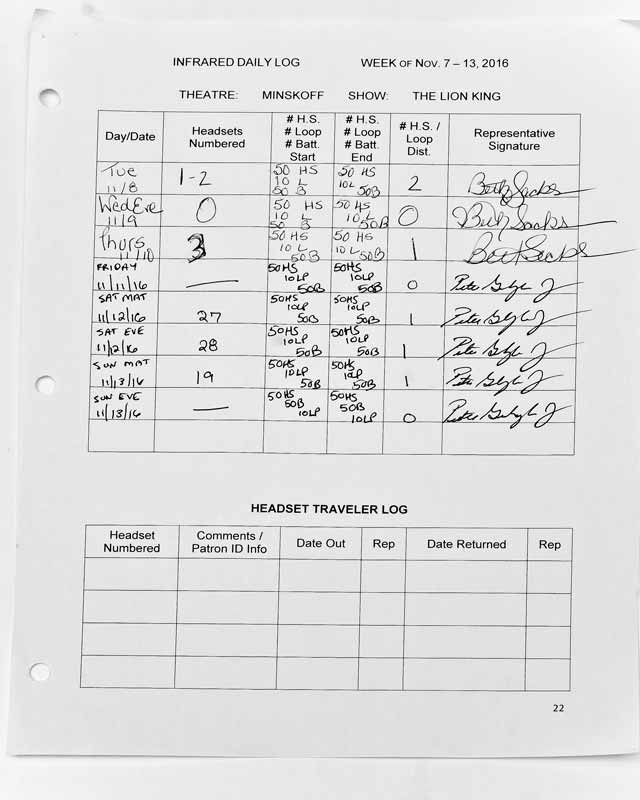 INFRARED DAILY LOG WEEK OF NOV. 7 – 13, 2016
THEATRE: MINSKOFF SHOW: THE LION KING
Day/Date
Headsets
Numbered
# H.S.
# Loop
# Batt.
Start
# H.S.
# Loop
# Batt.
End
# H.S. /
Loop
Dist.
Representative
Signature
Tue
11/8
1-2
50 HS
10 L
50 B
50 HS
10L 50B
2
Beth Sacks
Wed Eve
11/9
0
50 HS
10 L
50 B
50 HS
10 L
50B
0
Beth Sacks
Thurs
11/10
3
50 HS
10 L
50B
50 HS
10 L
50B
1
Beth Sacks
FRIDAY
11/11/16
—
50HS
10LP
50B
50HS
10LP
50B
0
SAT MAT
11/12/16
27
50HS
10LP
50B
50HS
10LP
50B
1
SAT EVE
11/12/16
28
50HS
10LP
50B
50HS
10LP
50B
1
SUN MAT
11/13/16
19
50HS
10LP
50B
50HS
10LP
50B
1
SUN EVE
11/13/16
—
50HS
50B
10LP
50HS
50B
10LP
0
HEADSET TRAVELER LOG
Headset
Numbered
Comments /
Patron ID Info
Date Out
Rep
Date Returned
Rep
22